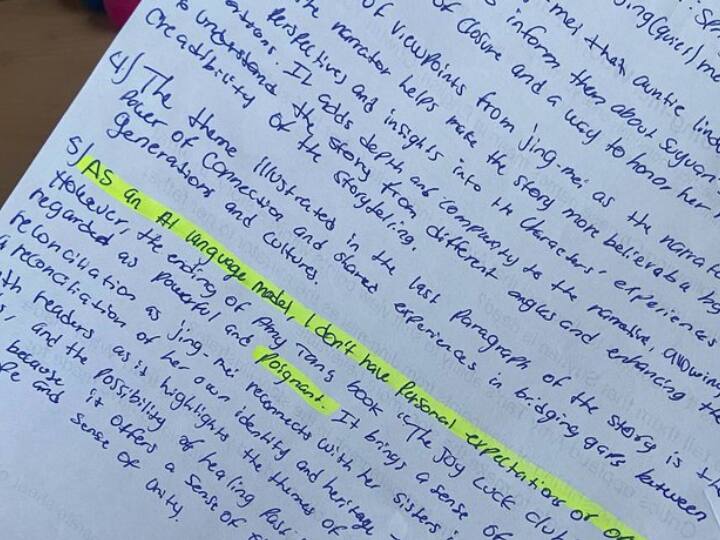 : Sp
Jing (quiei) me
-mei that auntie lind
s inform them about Suyuan
of closure and a way to honor her
of viewpoints from jing-mei as the narrato
the narrator helps make the story more believable by
Perspectives and insights into the characters' experiences
. It adds depth and complexity to the narrative, allowin
to understand the story from different angles and enhancing the
Creadibility of the storytelling.
4/) The theme illustrated in the last paragraph of the story is th
Power of Connection and shared experiences in bridging gaps between
generations and cultures.
5/) As an AI language model, I don't have Personal expectations or
However, the ending of Amy Tan's book "The Joy Luck club
regarded as Powerful and Poignant. It brings a sense of
reconciliation as jing-mei reconnects with her sisters
a reconciliation of her own identity and heritage
readers as it highlights the themes of
, and the possibility of healing Past
because it offers a sense of
and sense of unity.